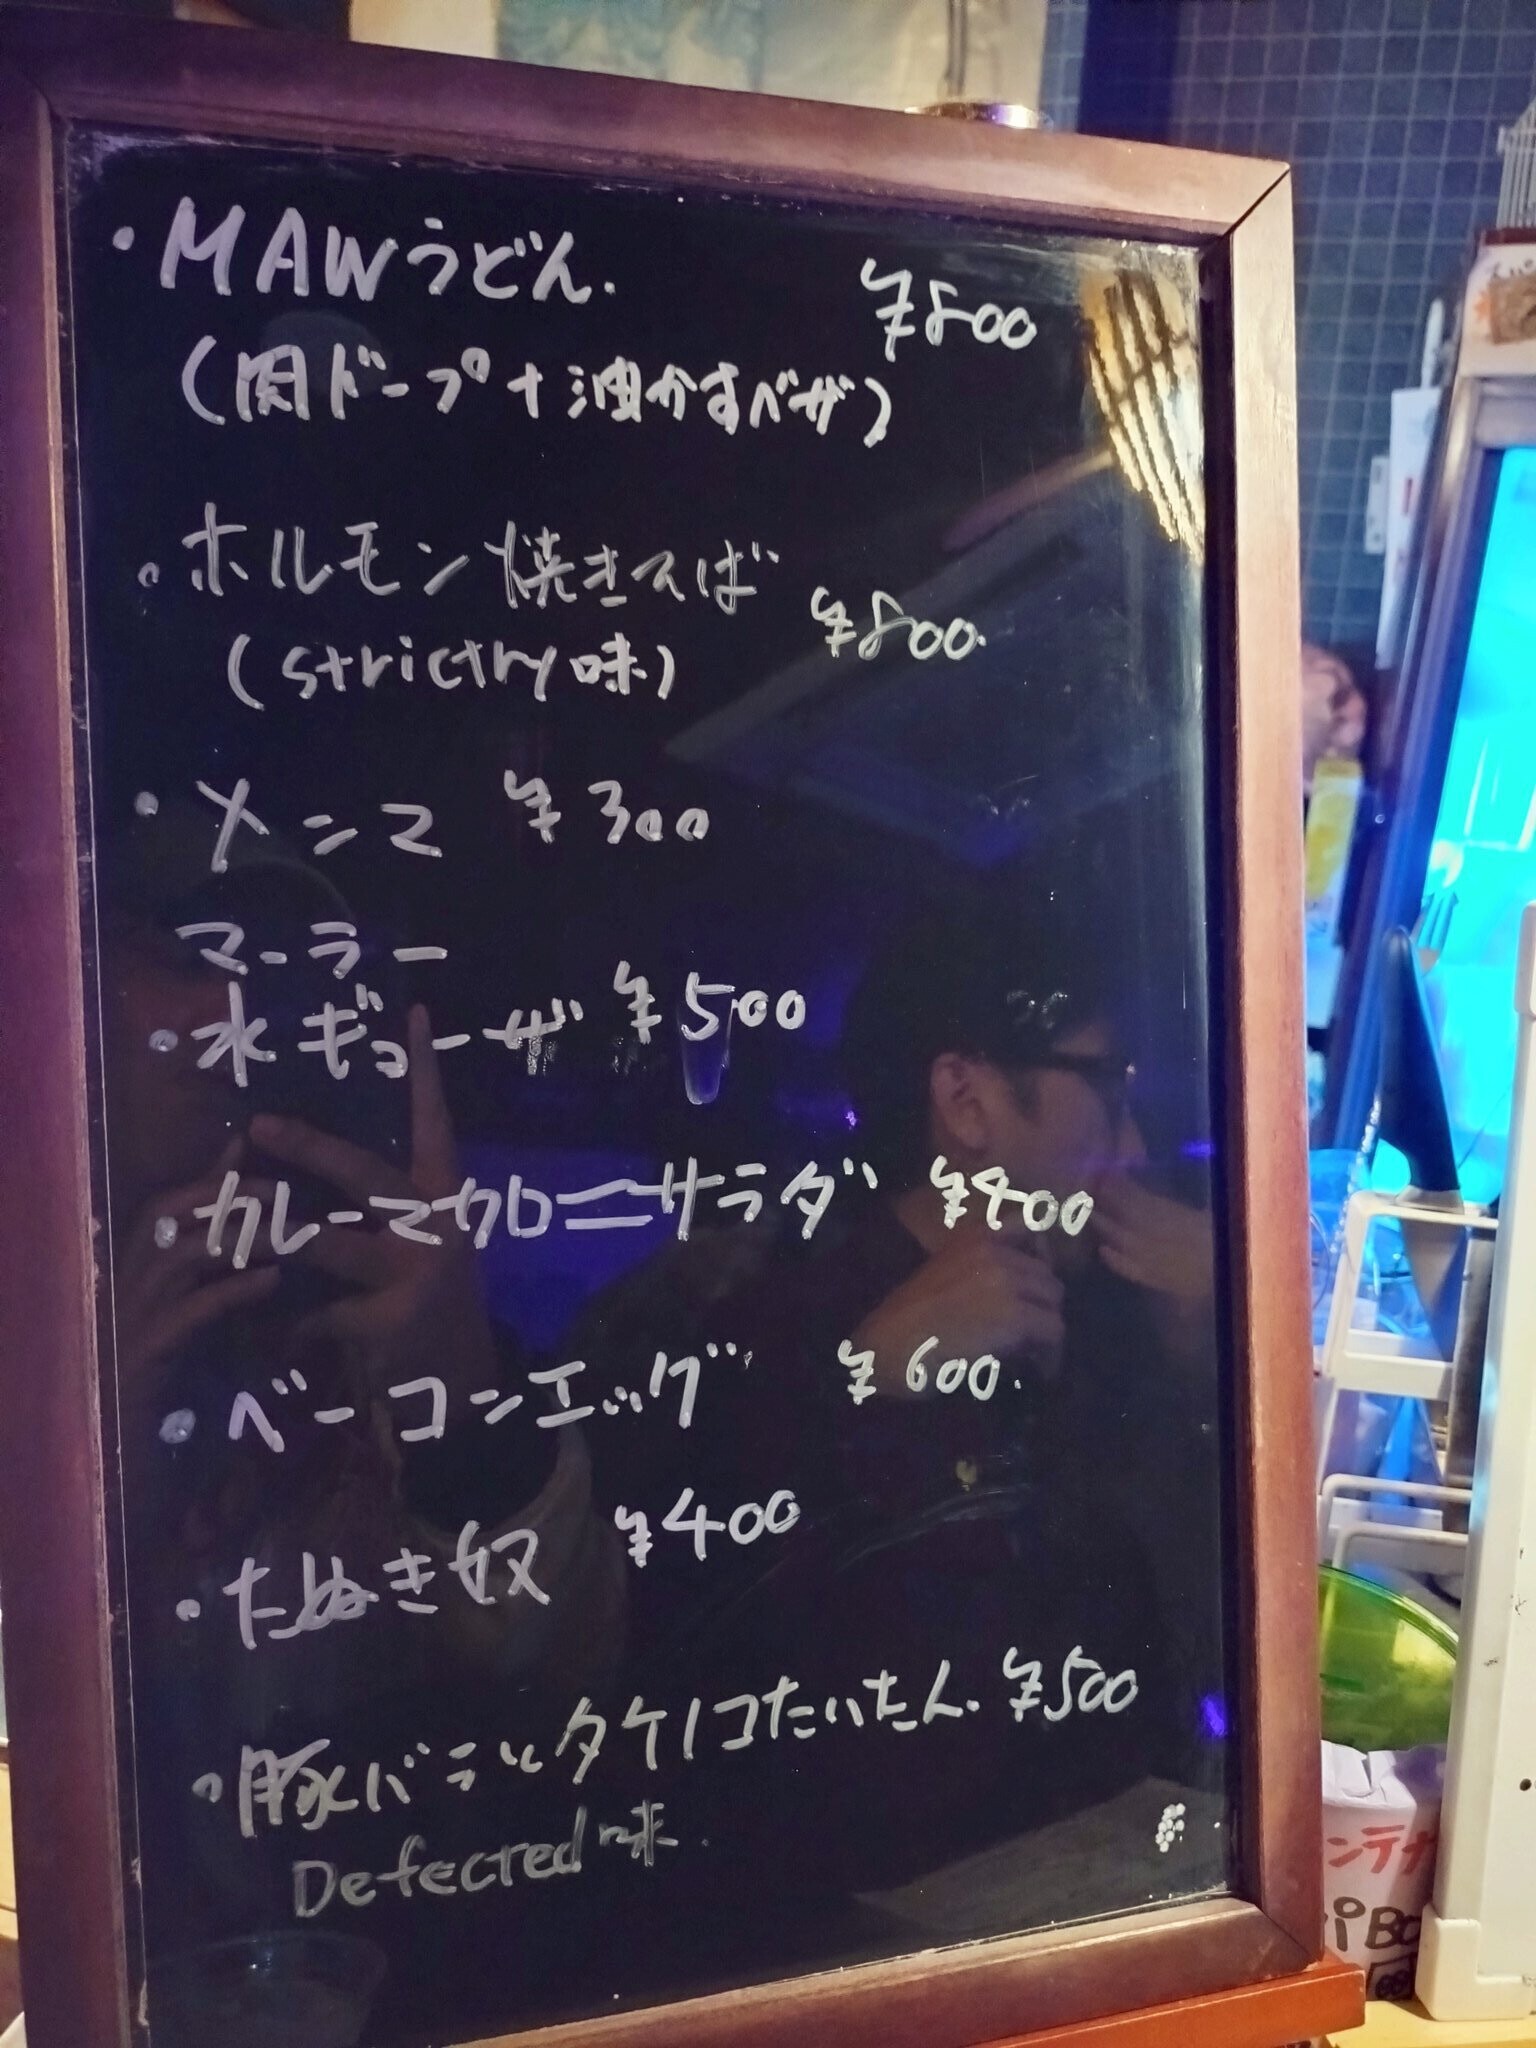 ・MAWうどん. ¥800
(肉ドープ+油かすベザ)
・ホルモン焼きそば ¥800.
(strictry味)
・メンマ ¥300
マーラー
・水ギョーザ ¥500
・カレーマカロニサラダ ¥400
・ベーコンエッグ ¥600.
・たぬき奴 ¥400
・豚バラとタケノコたいたん. ¥500
Defected味.
ンテナ